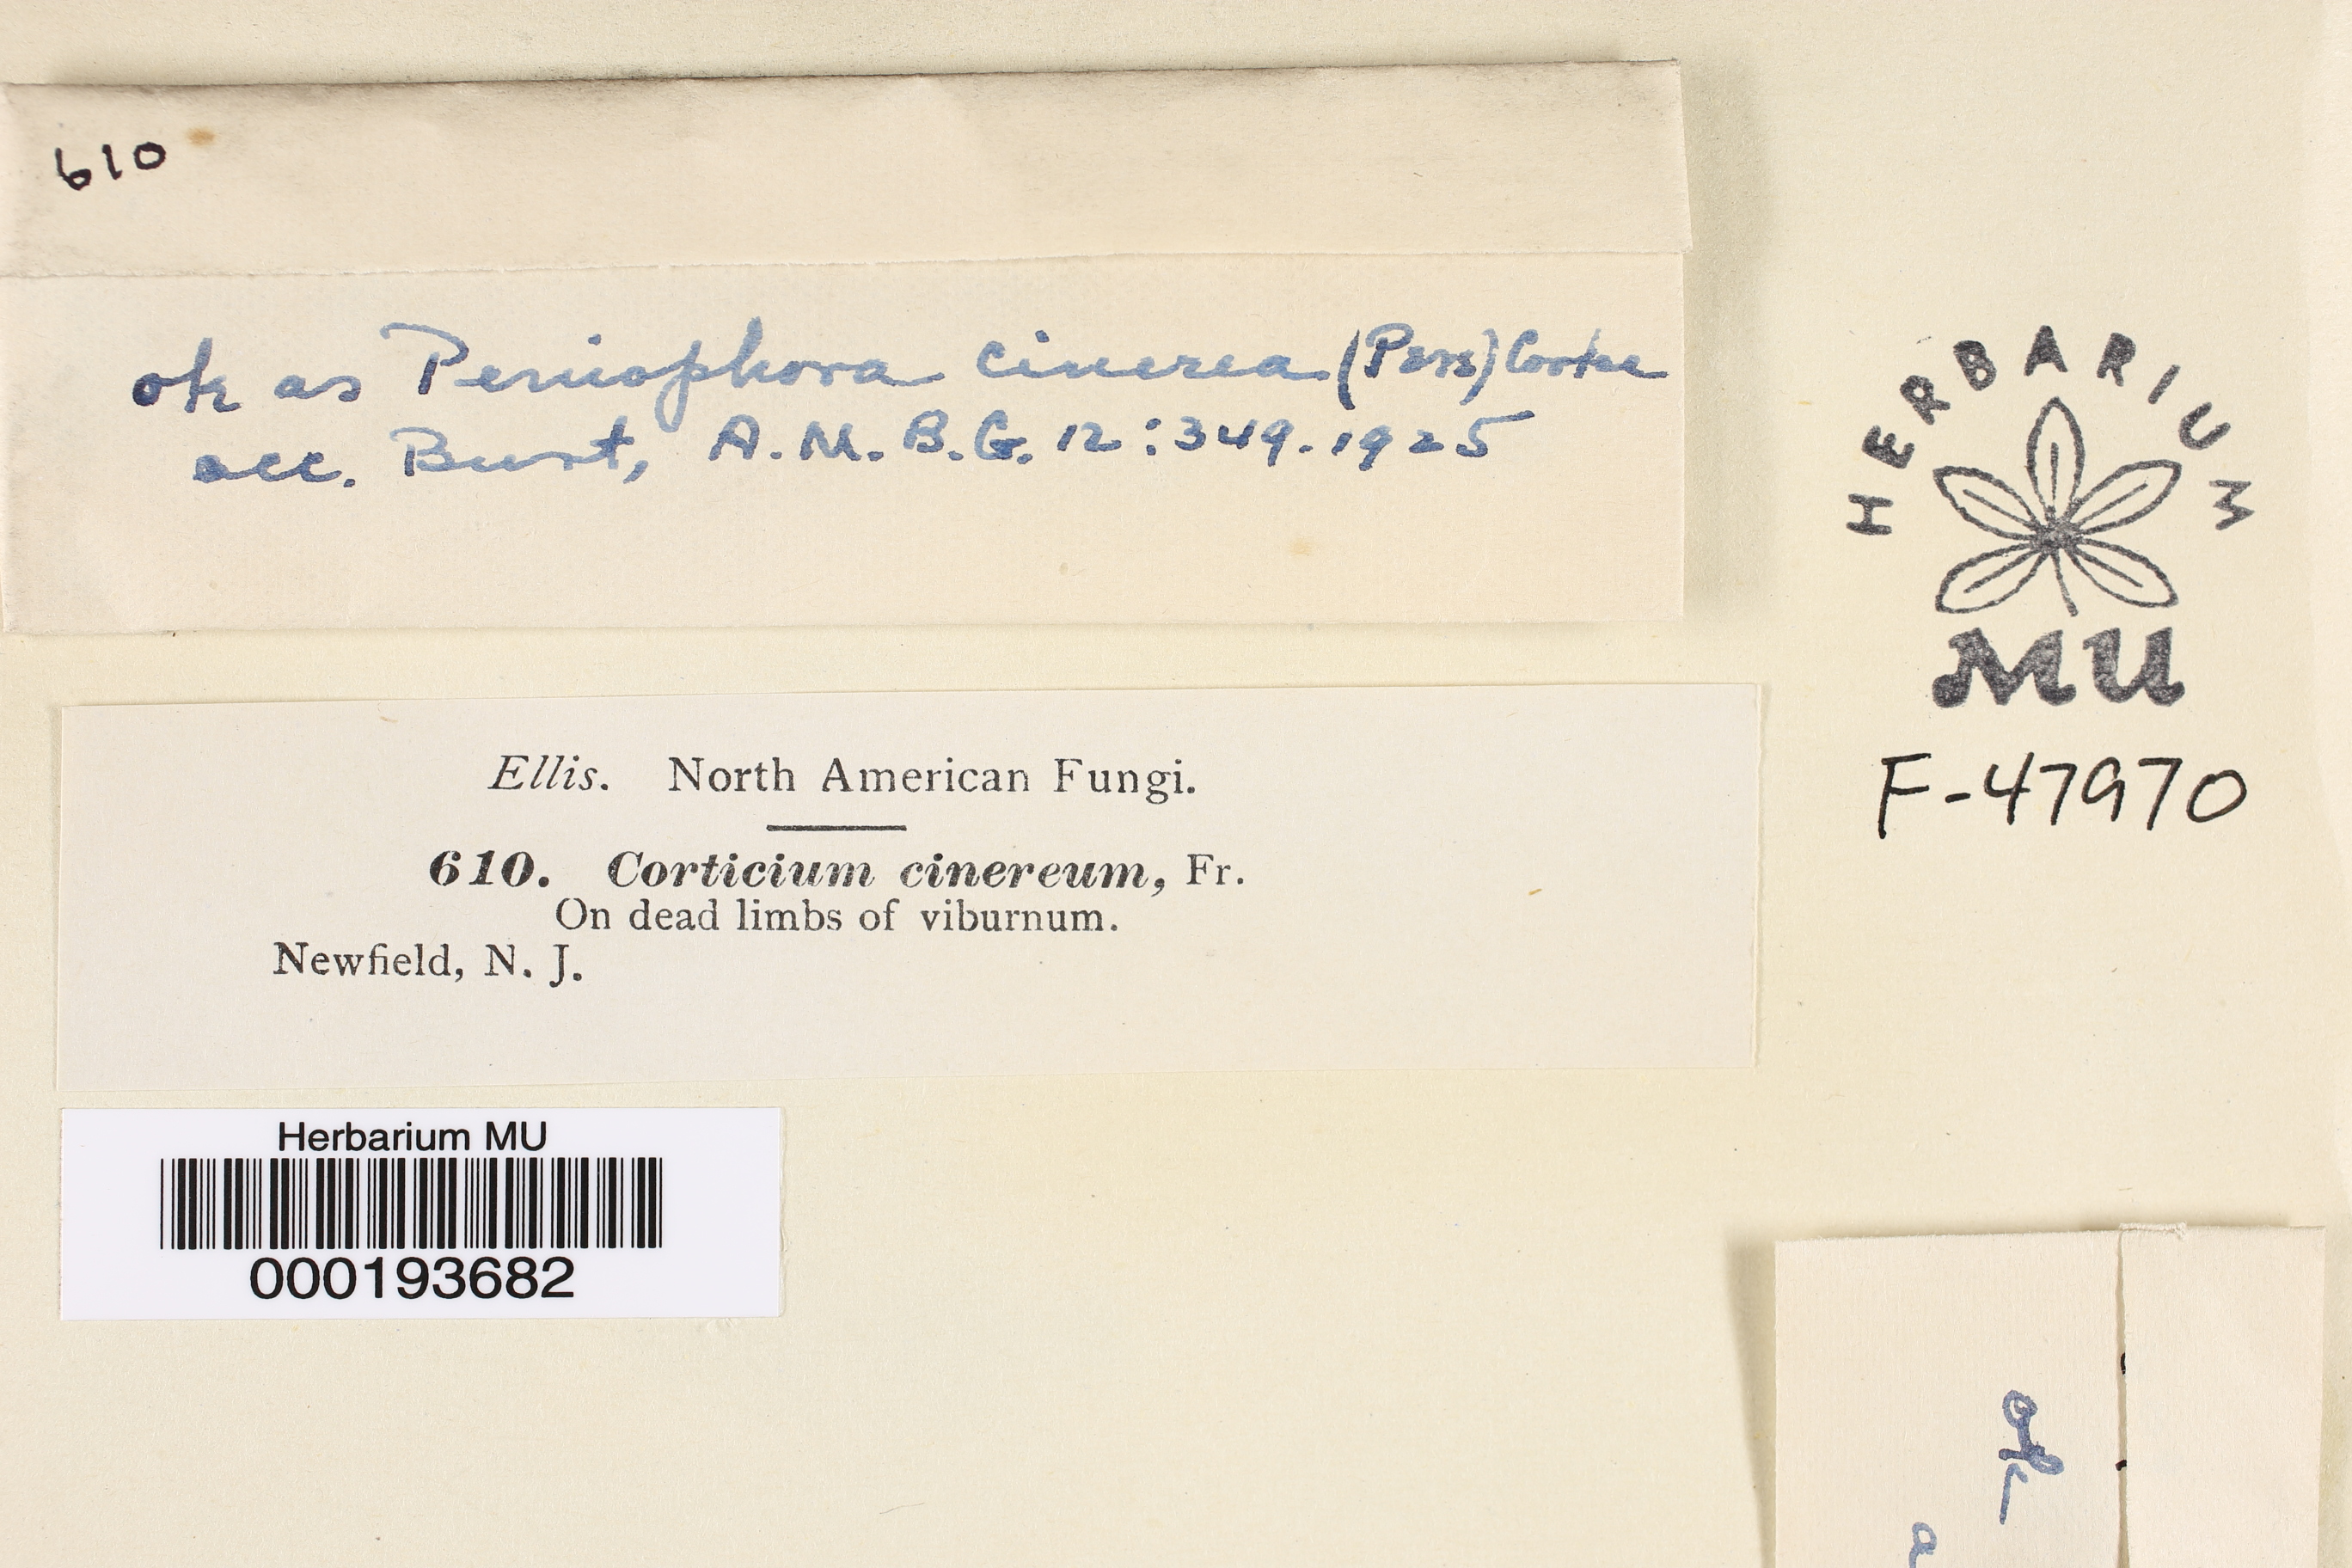 610
ok as Peniophora cinerea (Pers) Cooke
acc. Burt, A.M.B.G. 12:349.1925
HERBARIUM
MU
F-47970
Ellis. North American Fungi.
610. Corticium cinereum, Fr.
On dead limbs of viburnum.
Newfield, N. J.
Herbarium MU
000193682
ok
a